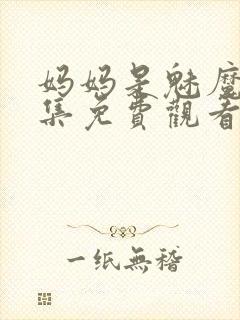 妈妈是魅魔
集免費觀看
一纸無稽